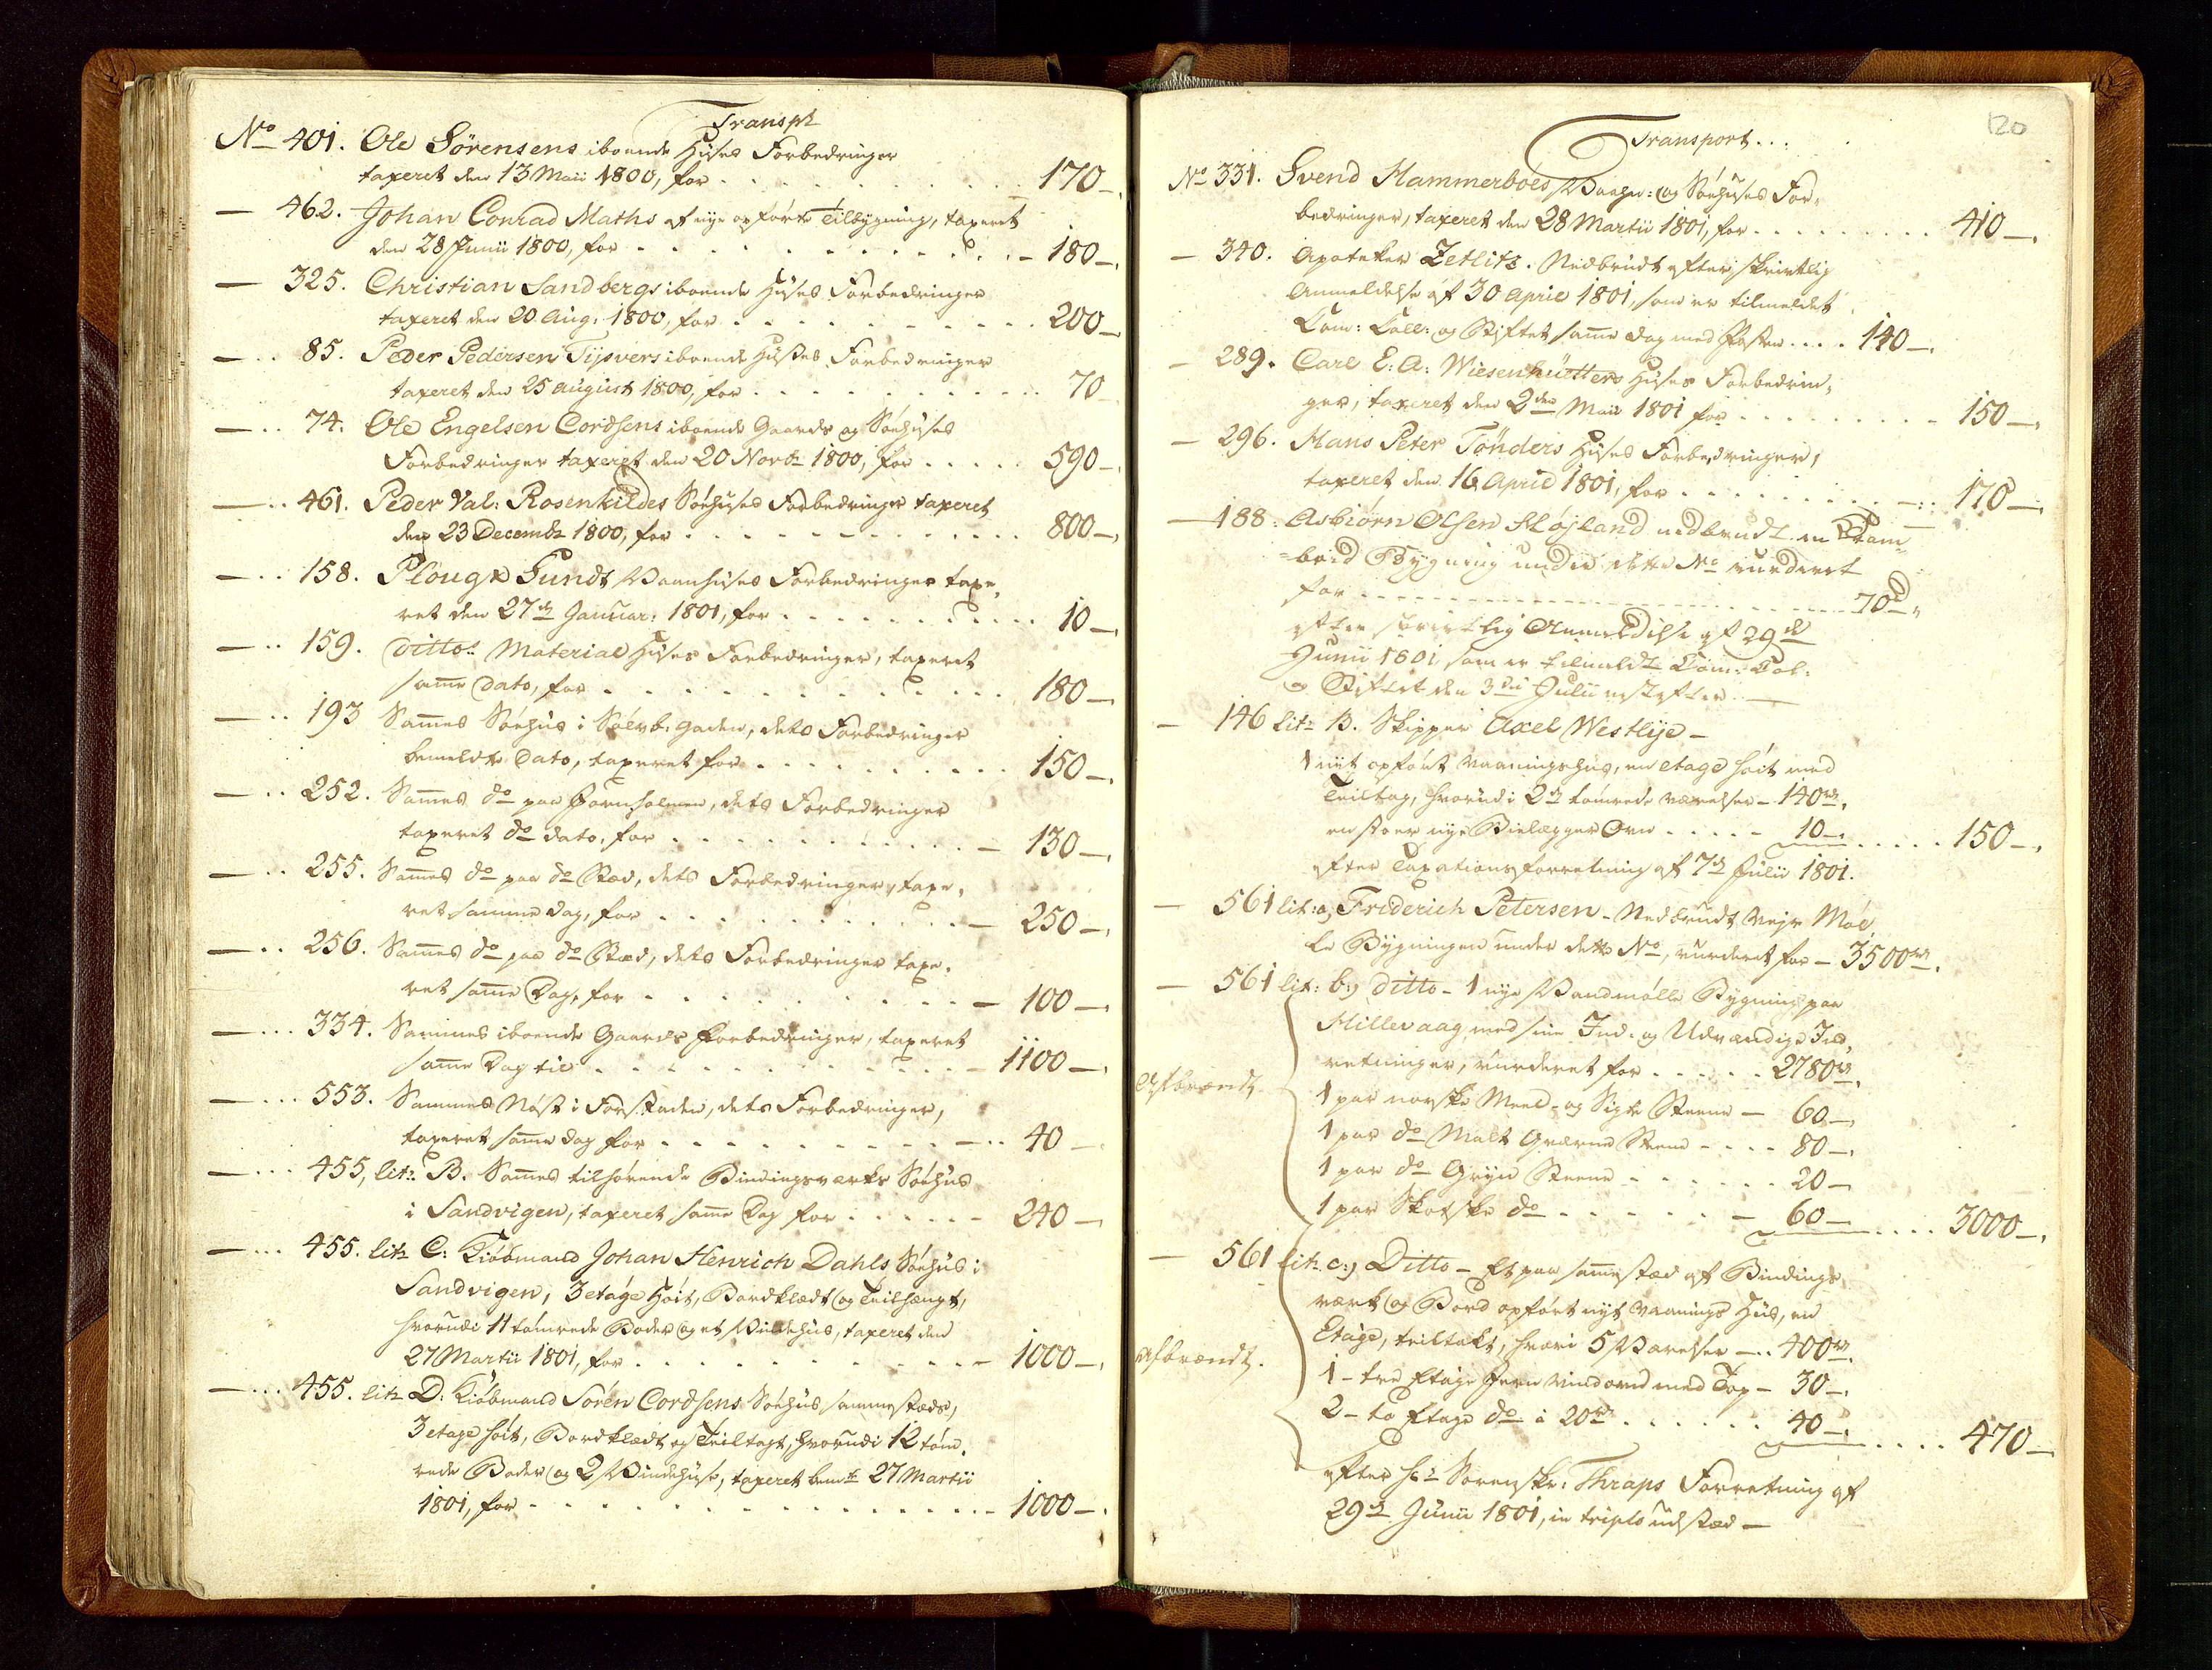 Transpt
No 401. Ole Sörensens iboende Huses Forbedringer
taxeret den 13 Maii 1800, for 170 –
– 462. Johan Conrad Maths af nye opførte Tilbygning, taxeret
den 28 Junii 1800, for 180 –
– 325. Christian Sandbergs iboende Huses Forbedringer
taxeret den 20 Aug: 1800, for 200 –
– 85. Peder Pedersen Tysvers iboende Huses Forbedringer
taxeret den 25 august 1800, for 70
– 74. Ole Engelsen Cordsens iboende Gaards og Søehuses
Forbedringer taxeret den 20 Novbr 1800, for 590 –
– 461. Peder Val: Rosenkildes Søehuses Forbedringer taxeret
den 23 Decembr 1800, for 800 –
– 158. Ploug & Sundt Vaanhuses Forbedringer taxe,
ret den 27de Januar: 1801, for 10 –
– 159. Ditto: Material Huses Forbedringer, taxeret
samme Dato, for 180 –
– 193 Sammes Søehus i Sølvb: Gaden, dets Forbedringer
bemeldte Dato, taxeret for 150 –
– 252. Sammes do paa Jorenholmen, dets Forbedringer
taxeret do dato, for 130 –
– 255. Sammes do paa do Stæd, dets Forbedringer, taxe,
ret samme Dag, for 250 –
– 256. Sammes do paa do Stæd, dets Forbedringer taxe,
ret samme Dag, for 100 –
– 334. Sammes iboende Gaards Forbedringer, taxeret
samme Dag til 1100 –
– 553. Sammes Nøst i Forstaden, dets Forbedringer,
taxeret samme Dag for 40 –
– 455, litr: B. Sammes tilhørende Bindingsværks Søehus
i Sandvigen, taxeret samme Dag for 240 –
– 455. litr C: Kiøbmand Johan Henrich Dahls Søehus i
Sandvigen, 3 etage Høit, Bordklædt og Teilhængt,
hvorudi 11 tømrede Boder og et Vindehus, taxeret den
27 Martii 1801, for 1000 –
– 455. litr D: Kiøbmand Sören Cordsens Søehus sammestæds,
3 etage høit, Bordklædt og Teiltagt, hvorudi 12 töm,
rede Boder og 2 Vindehuse, taxeret bemte 27 Martii
1801, for 1000 –
120
Transport
No 331. Svend Hammerboes Vaaghu: og Søehuses For,
bedringer, taxeret den 28 Martii 1801, for 410 –
– 340. Apoteker Zetlitz. Nedbrudt efter skrivtlig
Anmeldelse af 30 April 1801, som er tilmeldet
Cam: Coll: og Stiftet samme Dag med Posten 140 –
– 289. Carl E: A: Wiesenhütters Huses Forbedrin,
ger, taxeret den 2den Maii 1801 for 150 –
– 296. Hans Peter Tönders Huses Forbedringer,
taxeret den 16 April 1801, for 170 –
– 188. Asbiørn Olsen Højland nedbrudt en
bord Bygning under dette No vurderet
for 70 –
efter skrivtlig Anmeldelse af 29de
Junii 1801, som er tilmeldt Cam: Col:
og Stiftet den 3die Julii nestefter. –
– 146 litr B. Skipper Axel Westlye –
1 nyt opført Vaaningshus, en etage høit med
Teiltag, hvorudi 2de tømrede Værelser – 140 rd.
en stor nye Bielægger Ovn 10 – 150 –
efter Taxations forretning af 7de Julii 1801.
– 561 lit: a, Friderich Petersen – Nedbrudt Vejr Møl,
le Bygningen under dette No, vurderet for – 3500 rd.
– 561 lit: b:) ditto – 1 nye Vandmølle Bygning paa
Hillevaag, med sine Ind- og Udvændige Ind,
retninger, vurderet for 2780 rd.
Afbrændt
1 par norske Meel- og Sigte Steene – 60 –
1 par do Malt Qværne Steene 80 –
1 par do Gryn Steene 20 –
1 par Skotske do 60 – 3000 –
– 561 litr c:) Ditto – Et paa samme stæd af Bindings
værk og Bord opført nyt Vaanings Huus, en
Etage, teiltakt, hvori 5 Værelser – 400 rd.
afbrændt.
1 – tre Etage Jern Vindovn med Top – 30 –
2 – to Etage do à 20 rd 40 – 470 –
efter hr Sorenskr: Thraps Forretning af
29de Junii 1801, in triplo udstæd –